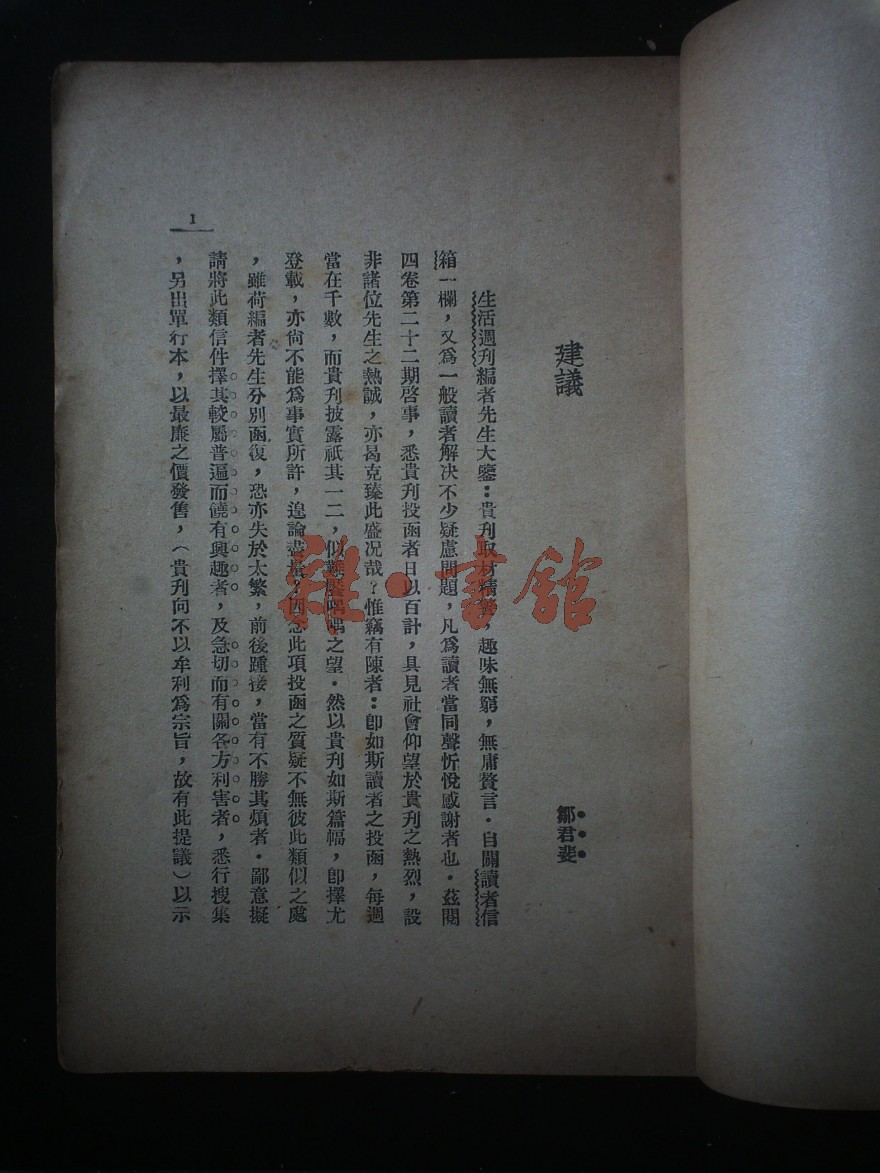 建議
鄒君斐
生活週刊編者先生大鑒：貴刋取材精，趣味無窮，無庸贅言．自關讀者信
箱一欄，又爲一般讀者解决不少疑慮問題，凡爲讀者當同聲忻悅感謝者也．茲閱
四卷第二十二期啓事，悉貴刋投函者日以百計，具見社會仰望於貴刋之熱烈，設
非諸位先生之熱誠，亦曷克臻此盛况哉？惟竊有陳者：卽如斯讀者之投函，每週
當在千數，而貴刋披露祇其一二，似難喁之望．然以貴刋如斯篇幅，卽擇尤
登載，亦尙不能爲事實所許，遑論盡量？因念此項投函之質疑不無彼此類似之處
，雖荷編者先生分別函復，恐亦失於太繁，前後踵接，當有不勝其煩者．鄙意擬
請將此類信件擇其較屬普遍而饒有興趣者，及急切而有關各方利害者，悉行搜集
，另出單行本，以最廉之價發售，（貴刋向不以牟利爲宗旨，故有此提議）以示
1
雜·書館